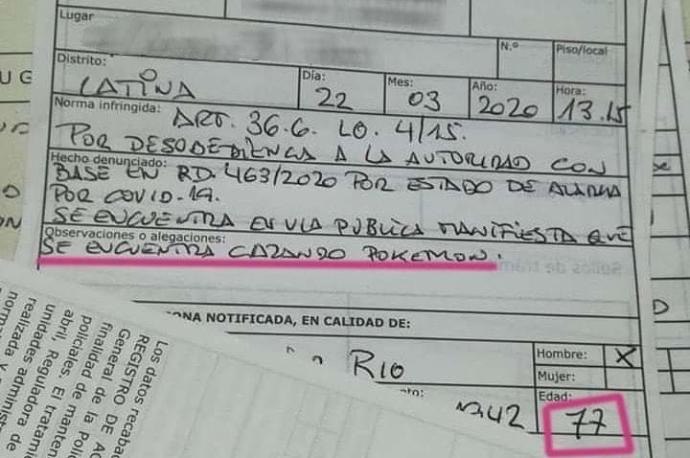 Lugar
N.º
Piso/local
Distrito:
LATINA
Día:
22
Mes:
03
Año:
2020
Hora:
13.15
Norma infringida: ART. 36.6. LO. 4/15.
POR DESOBEDIENCIA A LA AUTORIDAD CON
Hecho denunciado:
BASE EN RD. 463/2020 POR ESTADO DE ALARMA
POR COVID-19.
SE ENCUENTRA EN VIA PUBLICA MANIFIESTA QUE
Observaciones o alegaciones:
SE ENCUENTRA CAZANDO POKEMON.
ONA NOTIFICADA, EN CALIDAD DE:
RIO
Hombre: X
Mujer:
Edad:
77
42
Los datos recabad
REGISTRO DE AC
General de la Polic
finalidad de manten
policiales. El tratamien
abril, Reguladora de
unidades administ
realizada y
norma